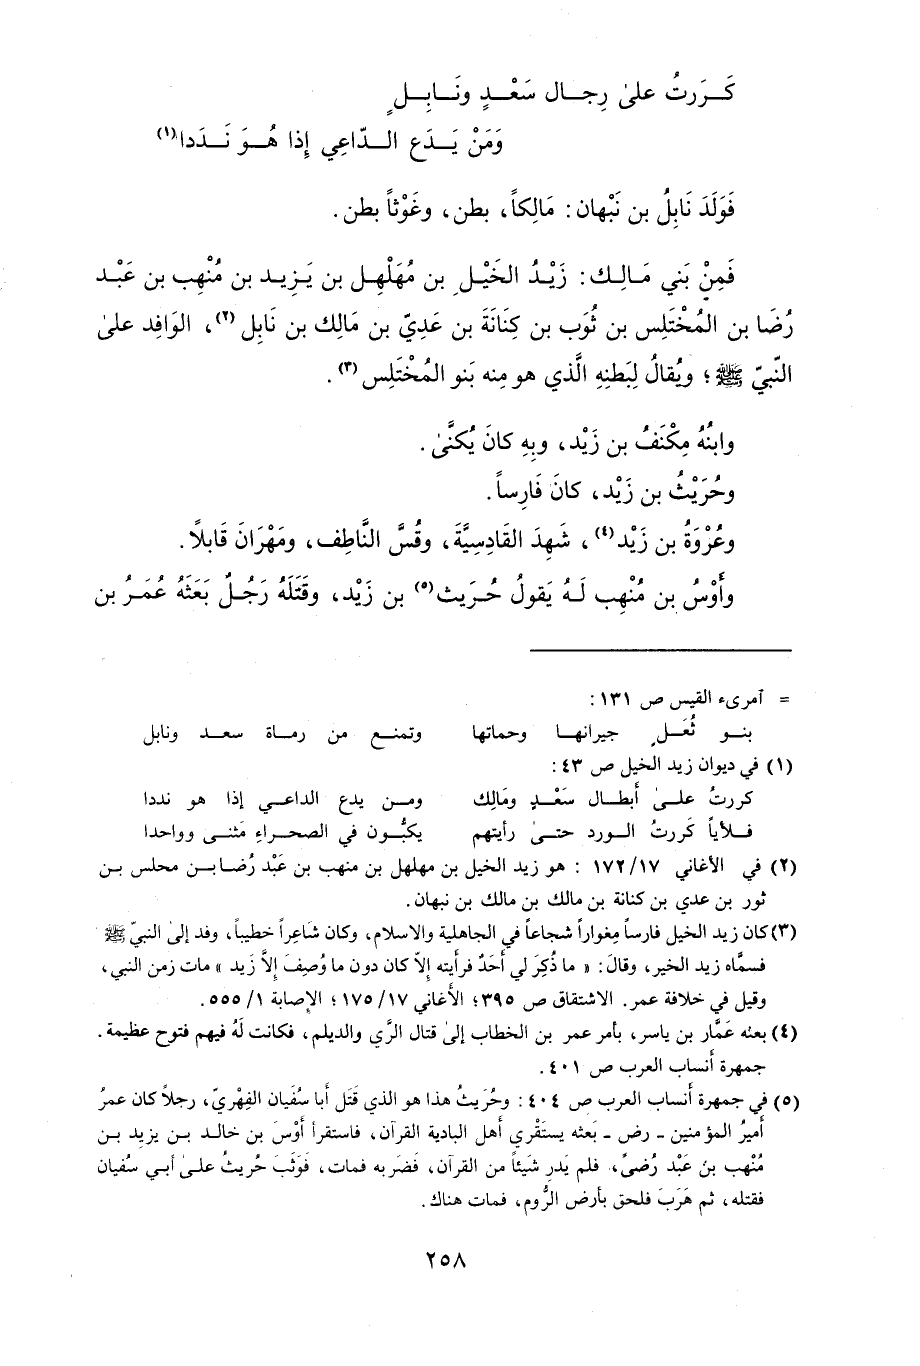 كَـرَرتُ علىٰ رِجـال سَعْـدٍ ونَـابِـلٍ
وَمَنْ يَـدَع الـدّاعِي إِذا هُـوَ نَـدَدا(١)
فَوَلَدَ نَابِلُ بن نَبْهان: مَالِكاً، بطن، وغَوْثاً بطن.
فَمِنْ بَني مَـالِـك: زَيْـدُ الخَيْـلِ بن مُهَلْهِل بن يَـزِيـد بن مُنْهِب بن عَبْـد
رُضَا بن المُخْتَلِس بن ثُوَب بن كِنَانَةَ بن عَدِيّ بن مَالِك بن نَابِل(٢)، الوَافِد علىٰ
النّبيّ ﷺ؛ ويُقالُ لِبَطنِهِ الَّذي هو مِنه بَنو المُخْتَلِس(٣).
وابنُهُ مِكْنَفُ بن زَيْد، وبِهِ كانَ يُكنَّىٰ.
وحُرَيْثُ بن زَيْد، كانَ فَارِساً.
وعُرْوَةُ بن زَيْد(٤)، شَهِدَ القَادِسِيَّةَ، وقُسَّ النَّاطِف، ومَهْرَانَ قَابلاً.
وأَوْسُ بن مُنْهِب لَـهُ يَقولُ حُـرَيث(٥) بن زَيْد، وقَتَلَهُ رَجُـلٌ بَعَثَهُ عُمَـرُ بن
= آمرىء القيس ص ١٣١:
بنــو ثُعَــلٍ جيرانهــا وحماتها وتمنــع من رمـاة سعــد ونابل
(١) في ديوان زيد الخيل ص ٤٣:
كررتُ علـىٰ أبطـال سَعْـدٍ ومَالِك ومـن يدع الداعـي إذا هو نددا
فـلأياً كَررتُ الـورد حتـىٰ رأيتهم يكبُّـون في الصحـراء مَثنـى وواحدا
(٢) في الأغاني ١٧٢/١٧ : هو زيد الخيل بن مهلهل بن منهب بن عَبْد رُضا بـن محلس بـن
ثور بن عدي بن كنانة بن مالك بن مالك بن نبهان.
(٣) كان زيد الخيل فارساً مِغواراً شجاعاً في الجاهلية والاسلام، وكان شَاعِراً خطيباً، وفد إلىٰ النبيّ ﷺ
فسمَّاه زيد الخير، وقالَ: « ما ذُكِرَ لي أحَدٌ فرأيته إلاّ كان دون ما وُصِفَ إلاَّ زيد » مات زمن النبي،
وقيل في خلافة عمر. الاشتقاق ص ٣٩٥؛ الأغاني ١٧/ ١٧٥؛ الإصابة ١/ ٥٥٥.
(٤) بعثه عَمَّار بن ياسر، بأمر عمر بن الخطاب إلىٰ قتال الرَّي والديلم، فكانت لَهُ فيهم فتوح عظيمة.
جمهرة أنساب العرب ص ٤٠١.
(٥) في جمهرة أنساب العرب ص ٤٠٤: وحُرَيثُ هذا هو الذي قَتَل أبا سُفيان الفِهْريّ، رجلاً كان عمرُ
أميرُ المؤمنين ـ رض ـ بَعثه يستَقْري أهل البادية القرآن، فاستقرأ أوْسَ بن خالـد بـن يزيد بـن
مُنْهب بن عَبْد رُضىً، فلم يَدرِ شَيئاً من القرآن، فضَربه فمات، فوَثَبَ حُريثُ علـىٰ أبـي سُفيان
فقتله، ثم هَرَبَ فلحق بأرض الرُّوم، فمات هناك.
٢٥٨